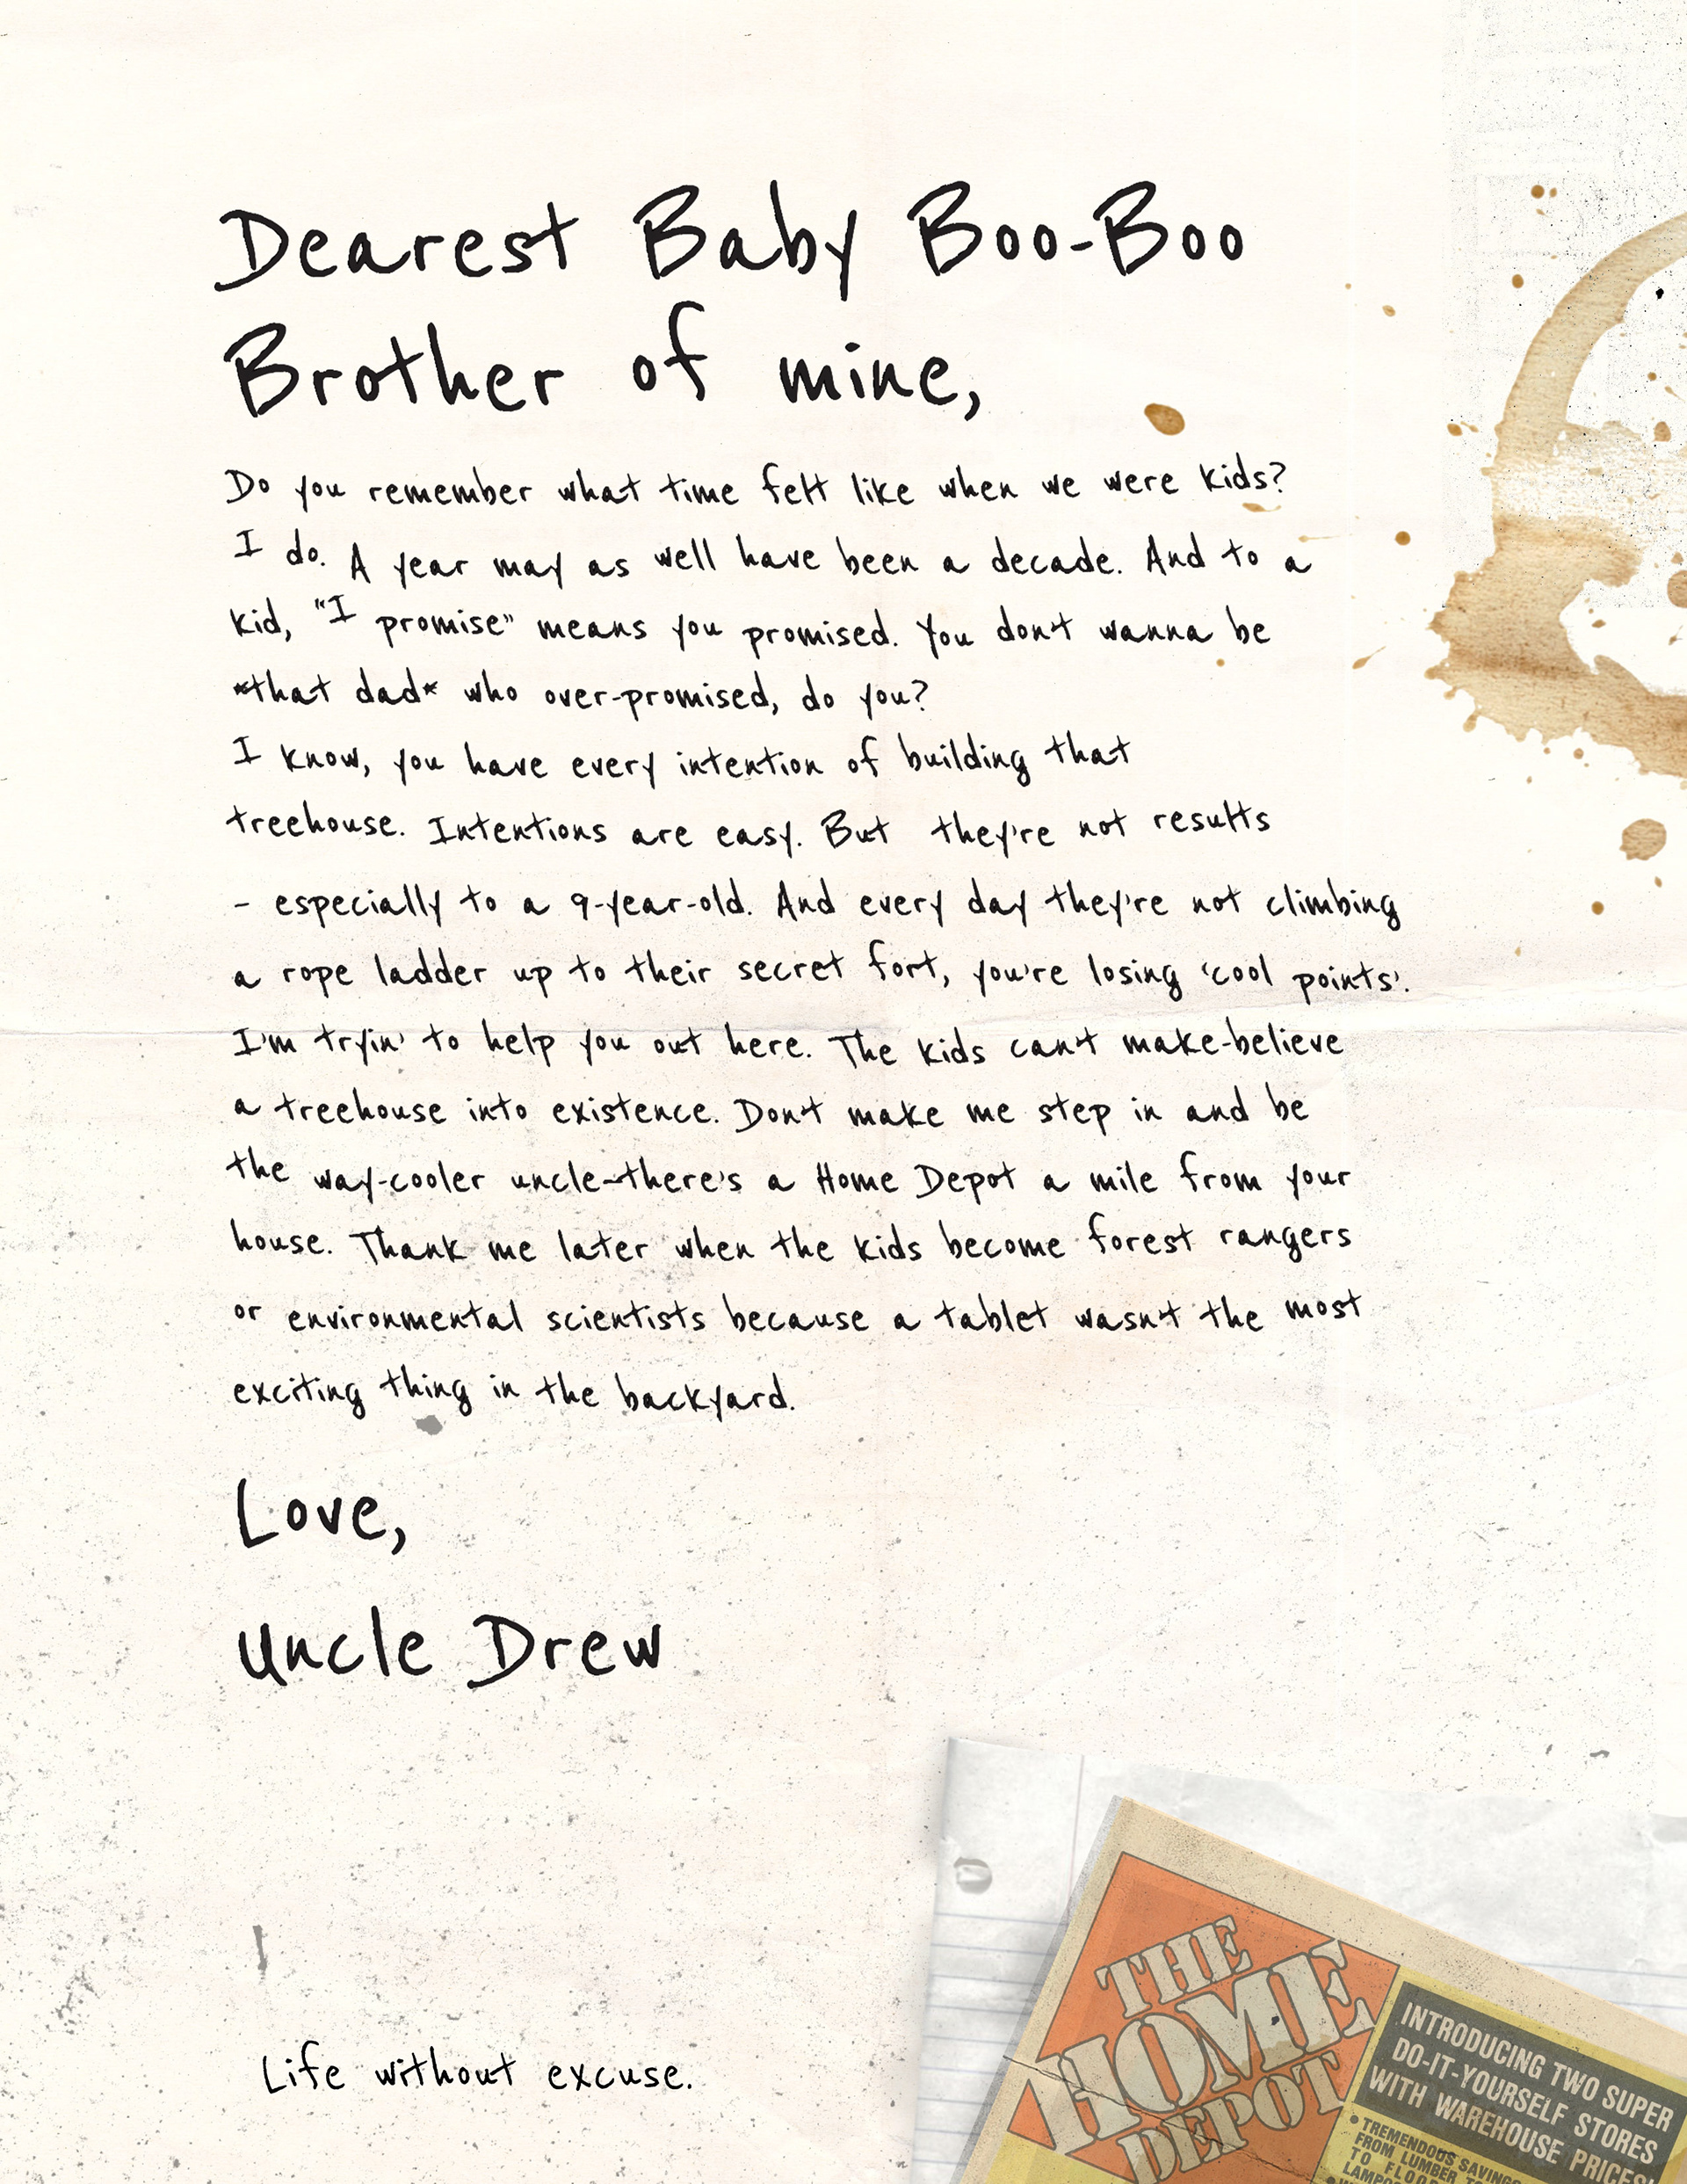 Dearest Baby Boo-Boo
Brother of mine,
Do you remember what time felt like when we were kids?
I do. A year may as well have been a decade. And to a
kid, "I promise" means you promised. You don't wanna be
*that dad* who over-promised, do you?
I know, you have every intention of building that
treehouse. Intentions are easy. But they're not results
- especially to a 9-year-old. And every day they're not climbing
a rope ladder up to their secret fort, you're losing 'cool points'.
I'm tryin' to help you out here. The kids can't make-believe
a treehouse into existence. Don't make me step in and be
the way-cooler uncle-there's a Home Depot a mile from your
house. Thank me later when the kids become forest rangers
or environmental scientists because a tablet wasn't the most
exciting thing in the backyard.
Love,
Uncle Drew
Life without excuse.
THE
HOME
DEPOT
INTRODUCING TWO SUPER
DO-IT-YOURSELF STORES
WITH WAREHOUSE PRICES!
• TREMENDOUS SAVINGS
FROM LUMBER
TO